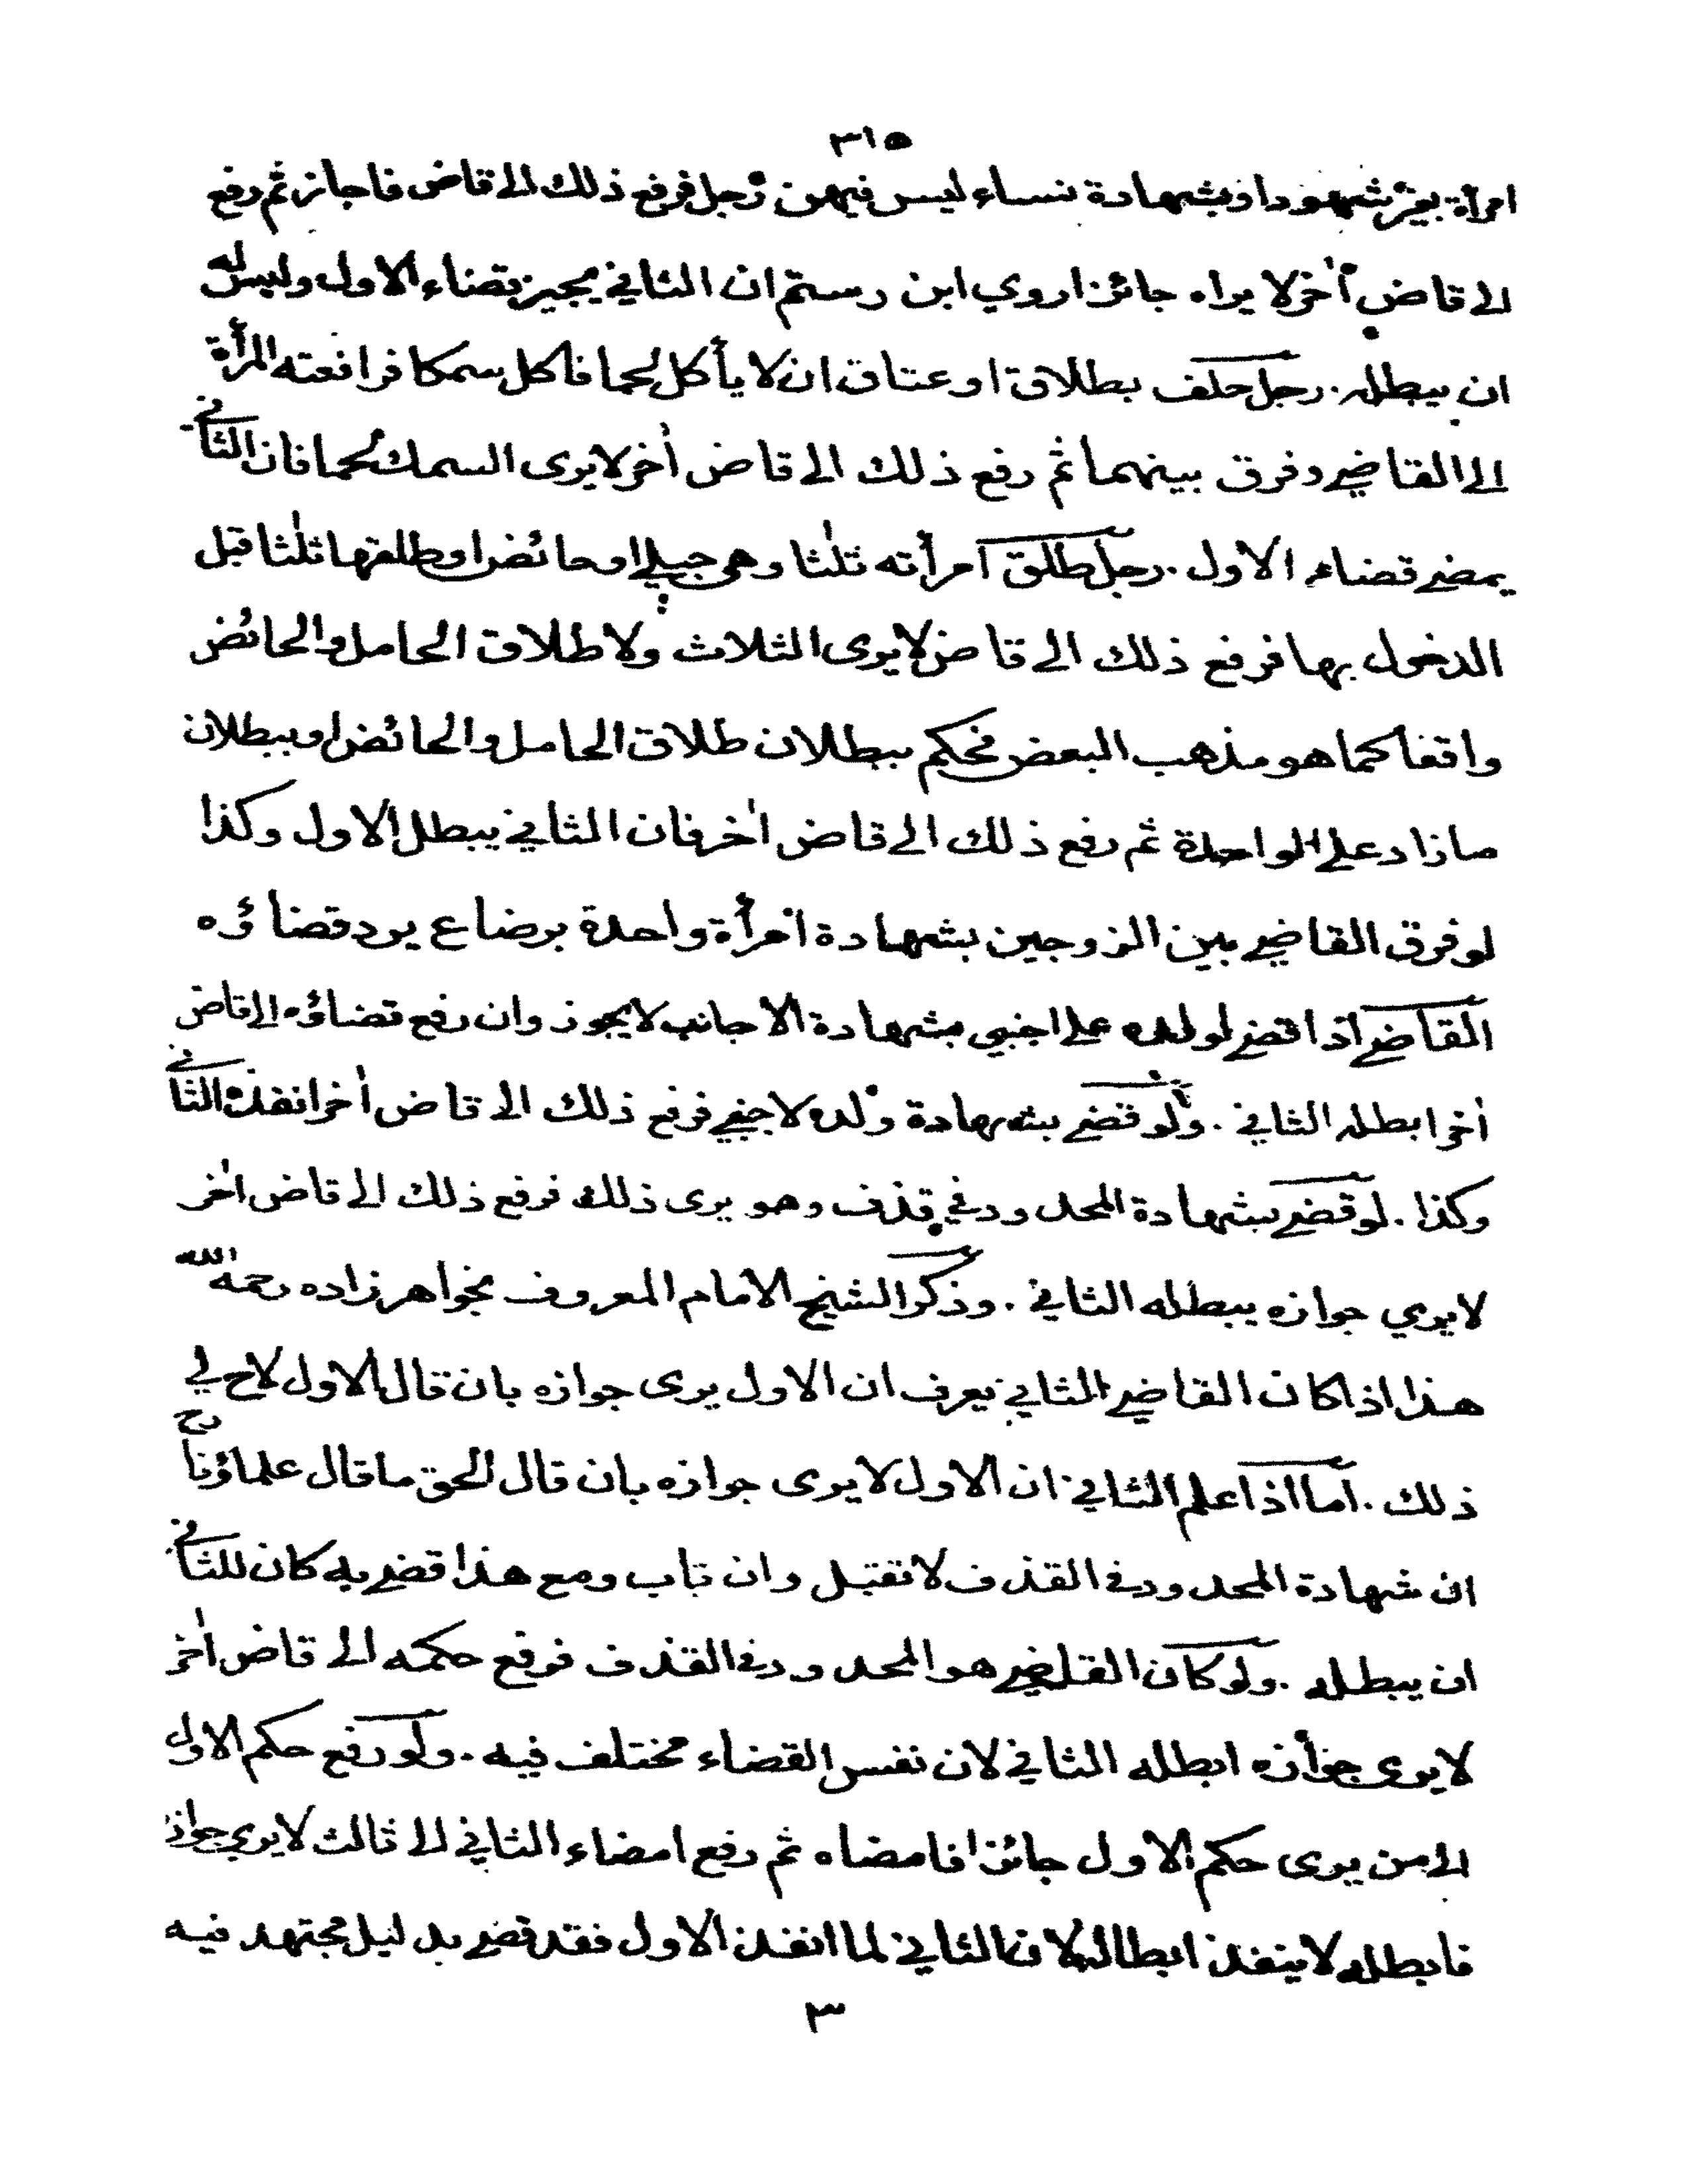 ٣١٥
امرأة بغير شهود او بشهادة نساء ليس فيهن رجل فرفع ذلك الى قاض فاجاز ثم رفع
الى قاض أخر لا يراه جائزا روي ابن رستم ان الثاني يجيز قضاء الاول وليس له
ان يبطله . رجل حلف بطلاق او عتاق ان لا يأكل لحما فاكل سمكا فرافعته المرأة
الى القاضي وفرق بينهما ثم رفع ذلك الى قاض أخر لا يرى السمك لحما فان الثاني
يمضي قضاء الاول . رجل طلق امرأته ثلثا وهي حبلى او حائض او طلقها ثلثا قبل
الدخول بها فرفع ذلك الى قاض لا يرى الثلاث ولا طلاق الحامل والحائض
واقفا كما هو مذهب البعض فحكم ببطلان طلاق الحامل والحائض او ببطلان
ما زاد على الواحدة ثم رفع ذلك الى قاض اخر فان الثاني يبطل الاول وكذا
لو فرق القاضي بين الزوجين بشهادة امرأة واحدة برضاع يرد قضاؤه
القاضي اذا قضى لولده على اجنبي بشهادة الاجانب لا يجوز وان رفع قضاؤه الى قاض
أخر ابطله الثاني . ولو قضى بشهادة ولده لاجنبي فرفع ذلك الى قاض أخر انفذه الثاني
وكذا . لو قضى بشهادة المحدود في قذف وهو يرى ذلك فرفع ذلك الى قاض اخر
لا يرى جوازه يبطله الثاني . وذكر الشيخ الامام المعروف بخواهر زاده رحمه الله
هذا اذا كان القاضي الثاني يعرف ان الاول يرى جوازه بان قال الاول لاح لي
ذلك . اما اذا علم الثاني ان الاول لا يرى جوازه بان قال الحق ما قال علماؤنا رح
ان شهادة المحدود في القذف لا تقبل وان تاب ومع هذا قضى به كان للثاني
ان يبطله . ولو كان القاضي هو المحدود في القذف فرفع حكمه الى قاض أخر
لا يرى جوازه ابطله الثاني لان نفس القضاء مختلف فيه . ولو رفع حكم الاول
الى من يرى حكم الاول جائزا فامضاه ثم رفع امضاء الثاني الى ثالث لا يرى جوازه
فابطله لا ينفذ ابطاله لان الثاني لما انفذ الاول فقد قضى بدليل مجتهد فيه
٣